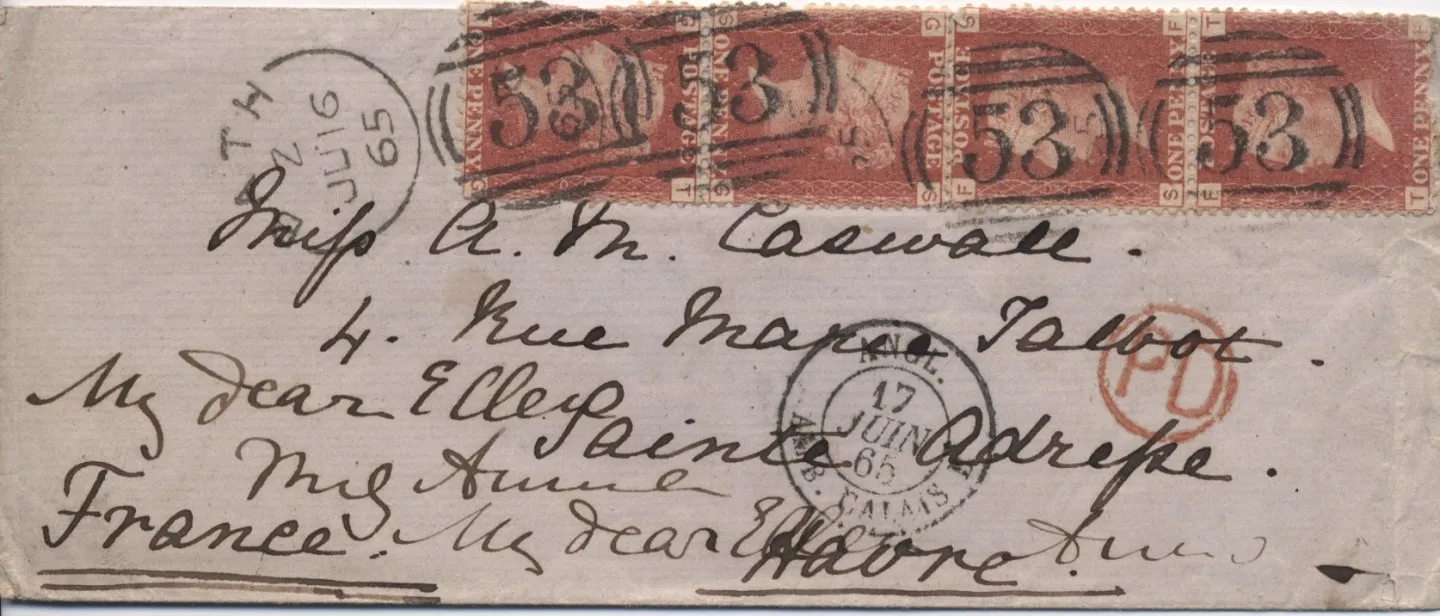 BATH
Z
JU 16
65
POSTAGE ONE PENNY
POSTAGE ONE PENNY
POSTAGE ONE PENNY
POSTAGE ONE PENNY
53 53 53 53
Miss A. M. Caswall.
4. Rue Marie Talbot.
Sainte Adresse.
Havre.
France.
My dear Ellen
My dear
ANGL.
17
JUIN
65
AMB. CALAIS
PD